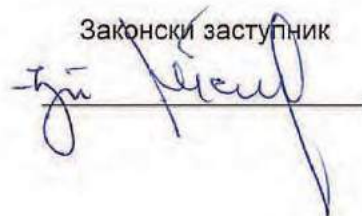 Законски заступник